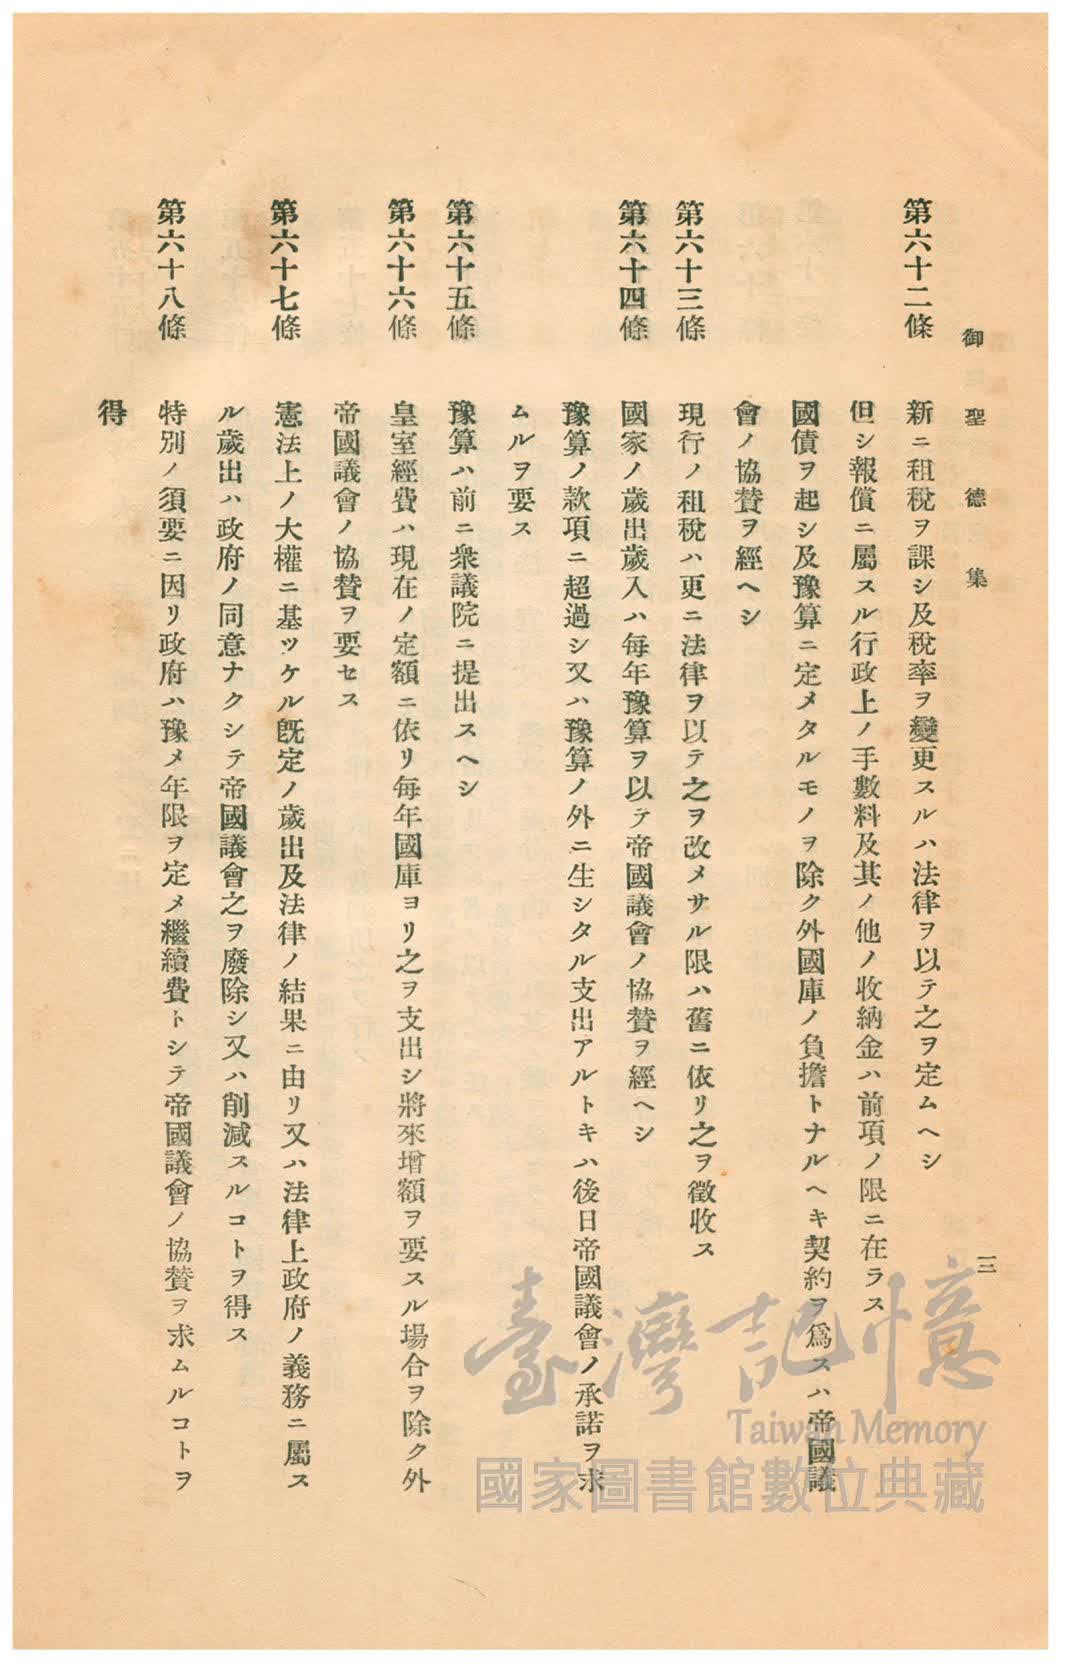 御聖德集
三
第六十二條 新ニ租稅ヲ課シ及稅率ヲ變更スルハ法律ヲ以テ之ヲ定ムヘシ
但シ報償ニ屬スル行政上ノ手數料及其ノ他ノ收納金ハ前項ノ限ニ在ラス
國債ヲ起シ及豫算ニ定メタルモノヲ除ク外國庫ノ負擔トナルヘキ契約ヲ爲スハ帝國議
會ノ協贊ヲ經ヘシ
第六十三條 現行ノ租稅ハ更ニ法律ヲ以テ之ヲ改メサル限ハ舊ニ依リ之ヲ徵收ス
第六十四條 國家ノ歲出歲入ハ每年豫算ヲ以テ帝國議會ノ協贊ヲ經ヘシ
豫算ノ款項ニ超過シ又ハ豫算ノ外ニ生シタル支出アルトキハ後日帝國議會ノ承諾ヲ求
ムルヲ要ス
第六十五條 豫算ハ前ニ衆議院ニ提出スヘシ
第六十六條 皇室經費ハ現在ノ定額ニ依リ每年國庫ヨリ之ヲ支出シ將來增額ヲ要スル場合ヲ除ク外
帝國議會ノ協贊ヲ要セス
第六十七條 憲法上ノ大權ニ基ツケル既定ノ歲出及法律ノ結果ニ由リ又ハ法律上政府ノ義務ニ屬ス
ル歲出ハ政府ノ同意ナクシテ帝國議會之ヲ廢除シ又ハ削減スルコトヲ得ス
第六十八條 特別ノ須要ニ因リ政府ハ豫メ年限ヲ定メ繼續費トシテ帝國議會ノ協贊ヲ求ムルコトヲ
得
臺灣記憶
Taiwan Memory
國家圖書館數位典藏